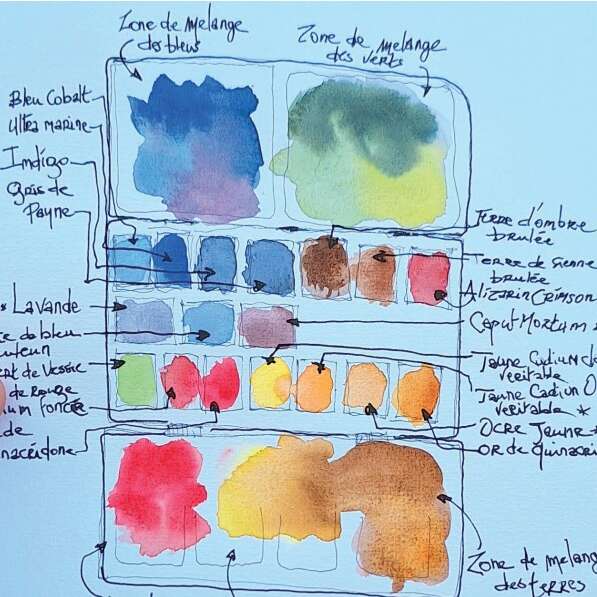 Zone de melange
des bleus
Zone de melange
des verts
Bleu Cobalt
Ultra marine
Indigo
Gris de
Payne
Terre d'ombre
brulée
Terre de Sienne
brulée
Alizarin Crimson
* Lavande
Caput Mortum
de bleu
Vert de Vessie
de Rouge
foncée
de
Jaune Cadium
veritable
Jaune Cadium O
veritable *
Ocre Jaune *
or de quinacri
Zone de melang
des terres